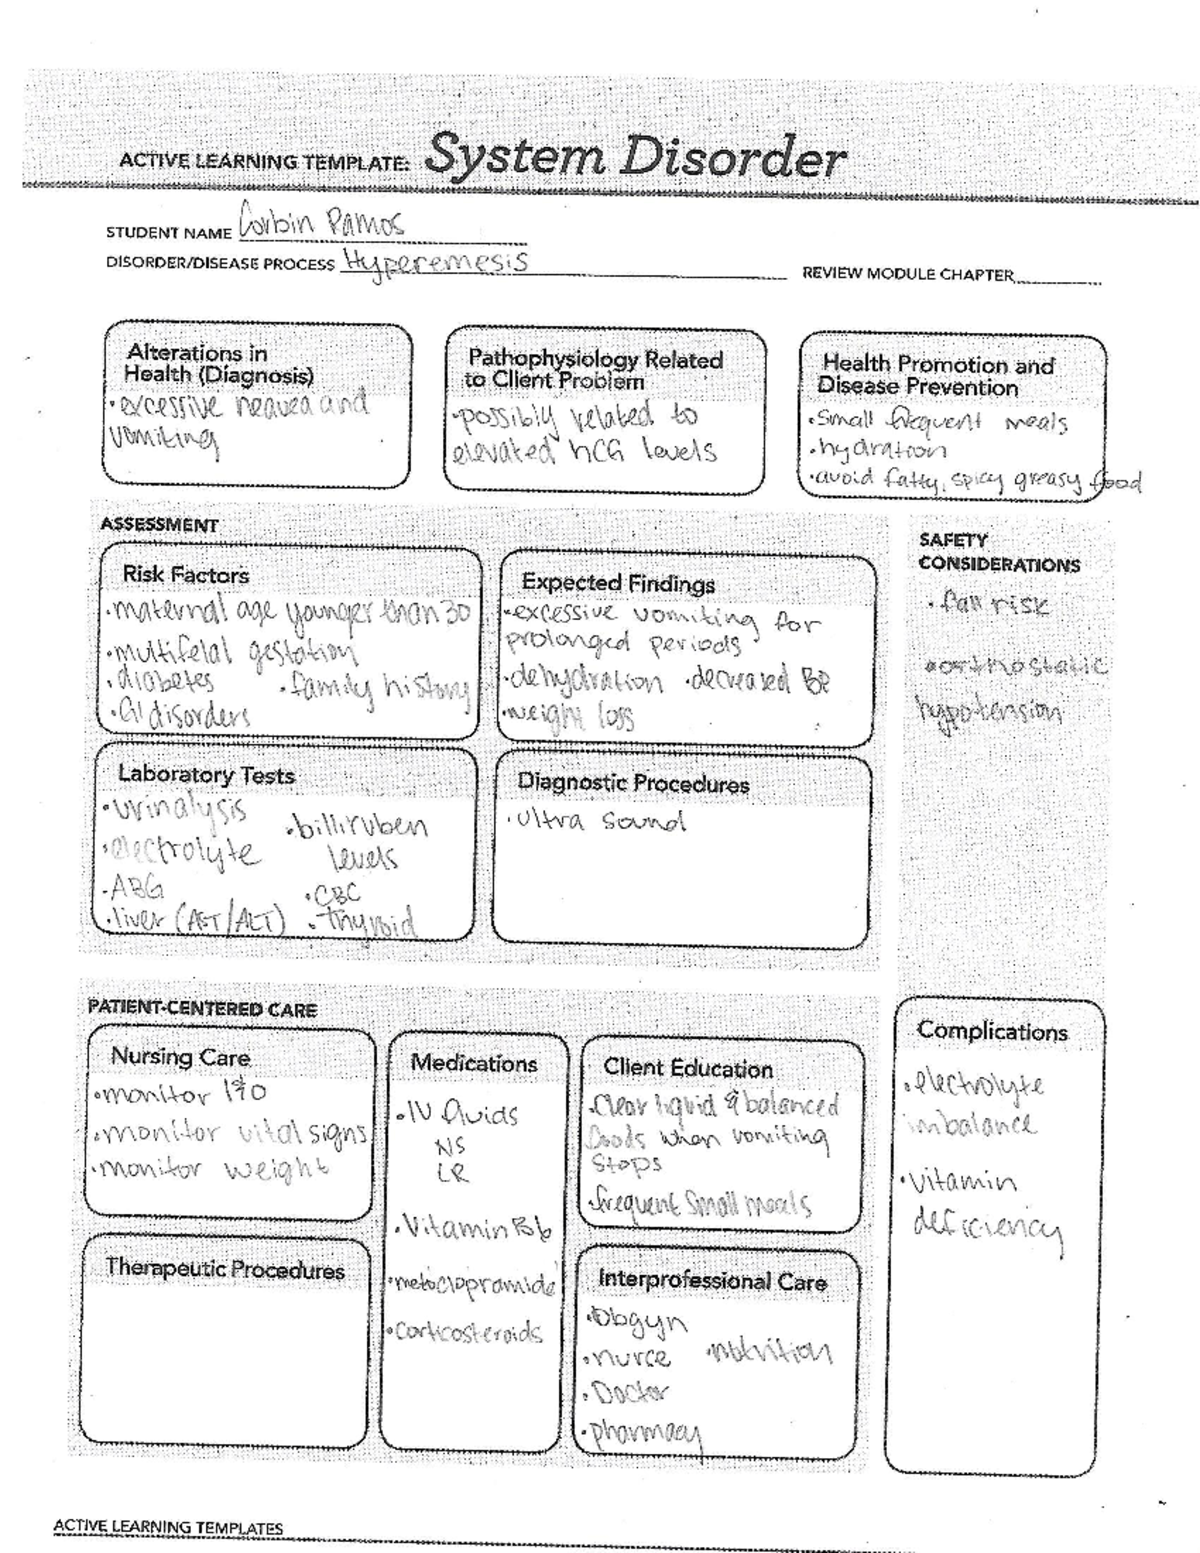 ACTIVE LEARNING TEMPLATE: System Disorder
STUDENT NAME Corbin Ramos
DISORDER/DISEASE PROCESS Hyperemesis
REVIEW MODULE CHAPTER
Alterations in
Health (Diagnosis)
• excessive neausea and
vomiting
Pathophysiology Related
to Client Problem
• possibly related to
elevated hCG levels
Health Promotion and
Disease Prevention
• Small frequent meals
• hydration
• avoid fatty, spicy greasy food
ASSESSMENT
Risk Factors
• maternal age younger than 30
• multifetal gestation
• diabetes • family history
• GI disorders
Expected Findings
• excessive vomiting for
prolonged periods
• dehydration • decreased BP
• weight loss
SAFETY
CONSIDERATIONS
• fall risk
• orthostatic
hypotension
Laboratory Tests
• urinalysis
• billiruben
• electrolyte levels
• ABG • CBC
• liver (AST/ALT) • thyroid
Diagnostic Procedures
• ultra sound
PATIENT-CENTERED CARE
Nursing Care
• monitor I&O
• monitor vital signs
• monitor weight
Medications
• IV fluids
NS
LR
• Vitamin B6
• metoclopramide
• corticosteroids
Client Education
• Clear liquid & balanced
foods when vomiting
stops
• frequent small meals
Complications
• electrolyte
imbalance
• vitamin
deficiency
Therapeutic Procedures
Interprofessional Care
• Obgyn
• nurce • nutrition
• Doctor
• pharmacy
ACTIVE LEARNING TEMPLATES